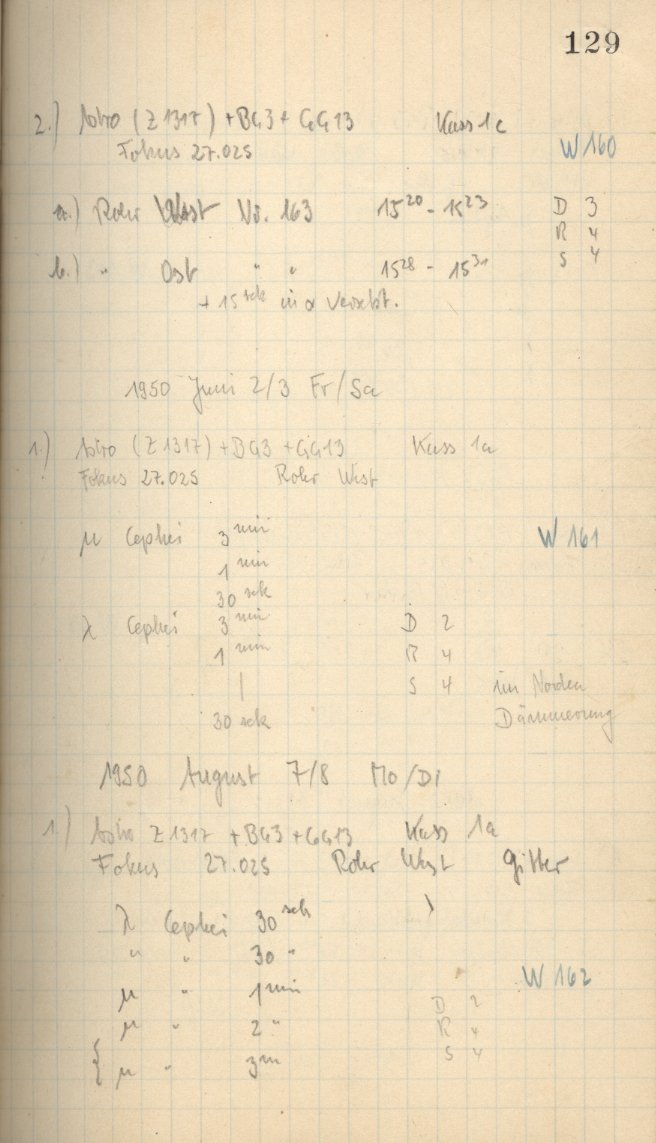 129
2.) Astro (Z 1317) + BG3 + GG13 Kass 1c
Fokus 27.025 W 160
a.) Rohr West Nr. 163 15²⁰ - 15²³ D 3
R 4
b.) " Ost " " 15²⁸ - 15³¹ S 4
+ 15 sek in α versetzt.
1950 Juni 2/3 Fr/Sa
1.) Astro (Z 1317) + BG3 + GG13 Kass 1a
Fokus 27.025 Rohr West
μ Cephei 3 min W 161
1 min
30 sek
λ Cephei 3 min D 2
1 min R 4
| S 4 im Norden
30 sek Dämmerung
1950 August 7/8 Mo/Di
1.) Astro Z 1317 + BG3 + GG13 Kass 1a
Fokus 27.025 Rohr West Gitter
λ Cephei 30 sek
" " 30 "
W 162
μ " 1 min
D 2
μ " 2 " R 4
{ μ " 3 m S 4